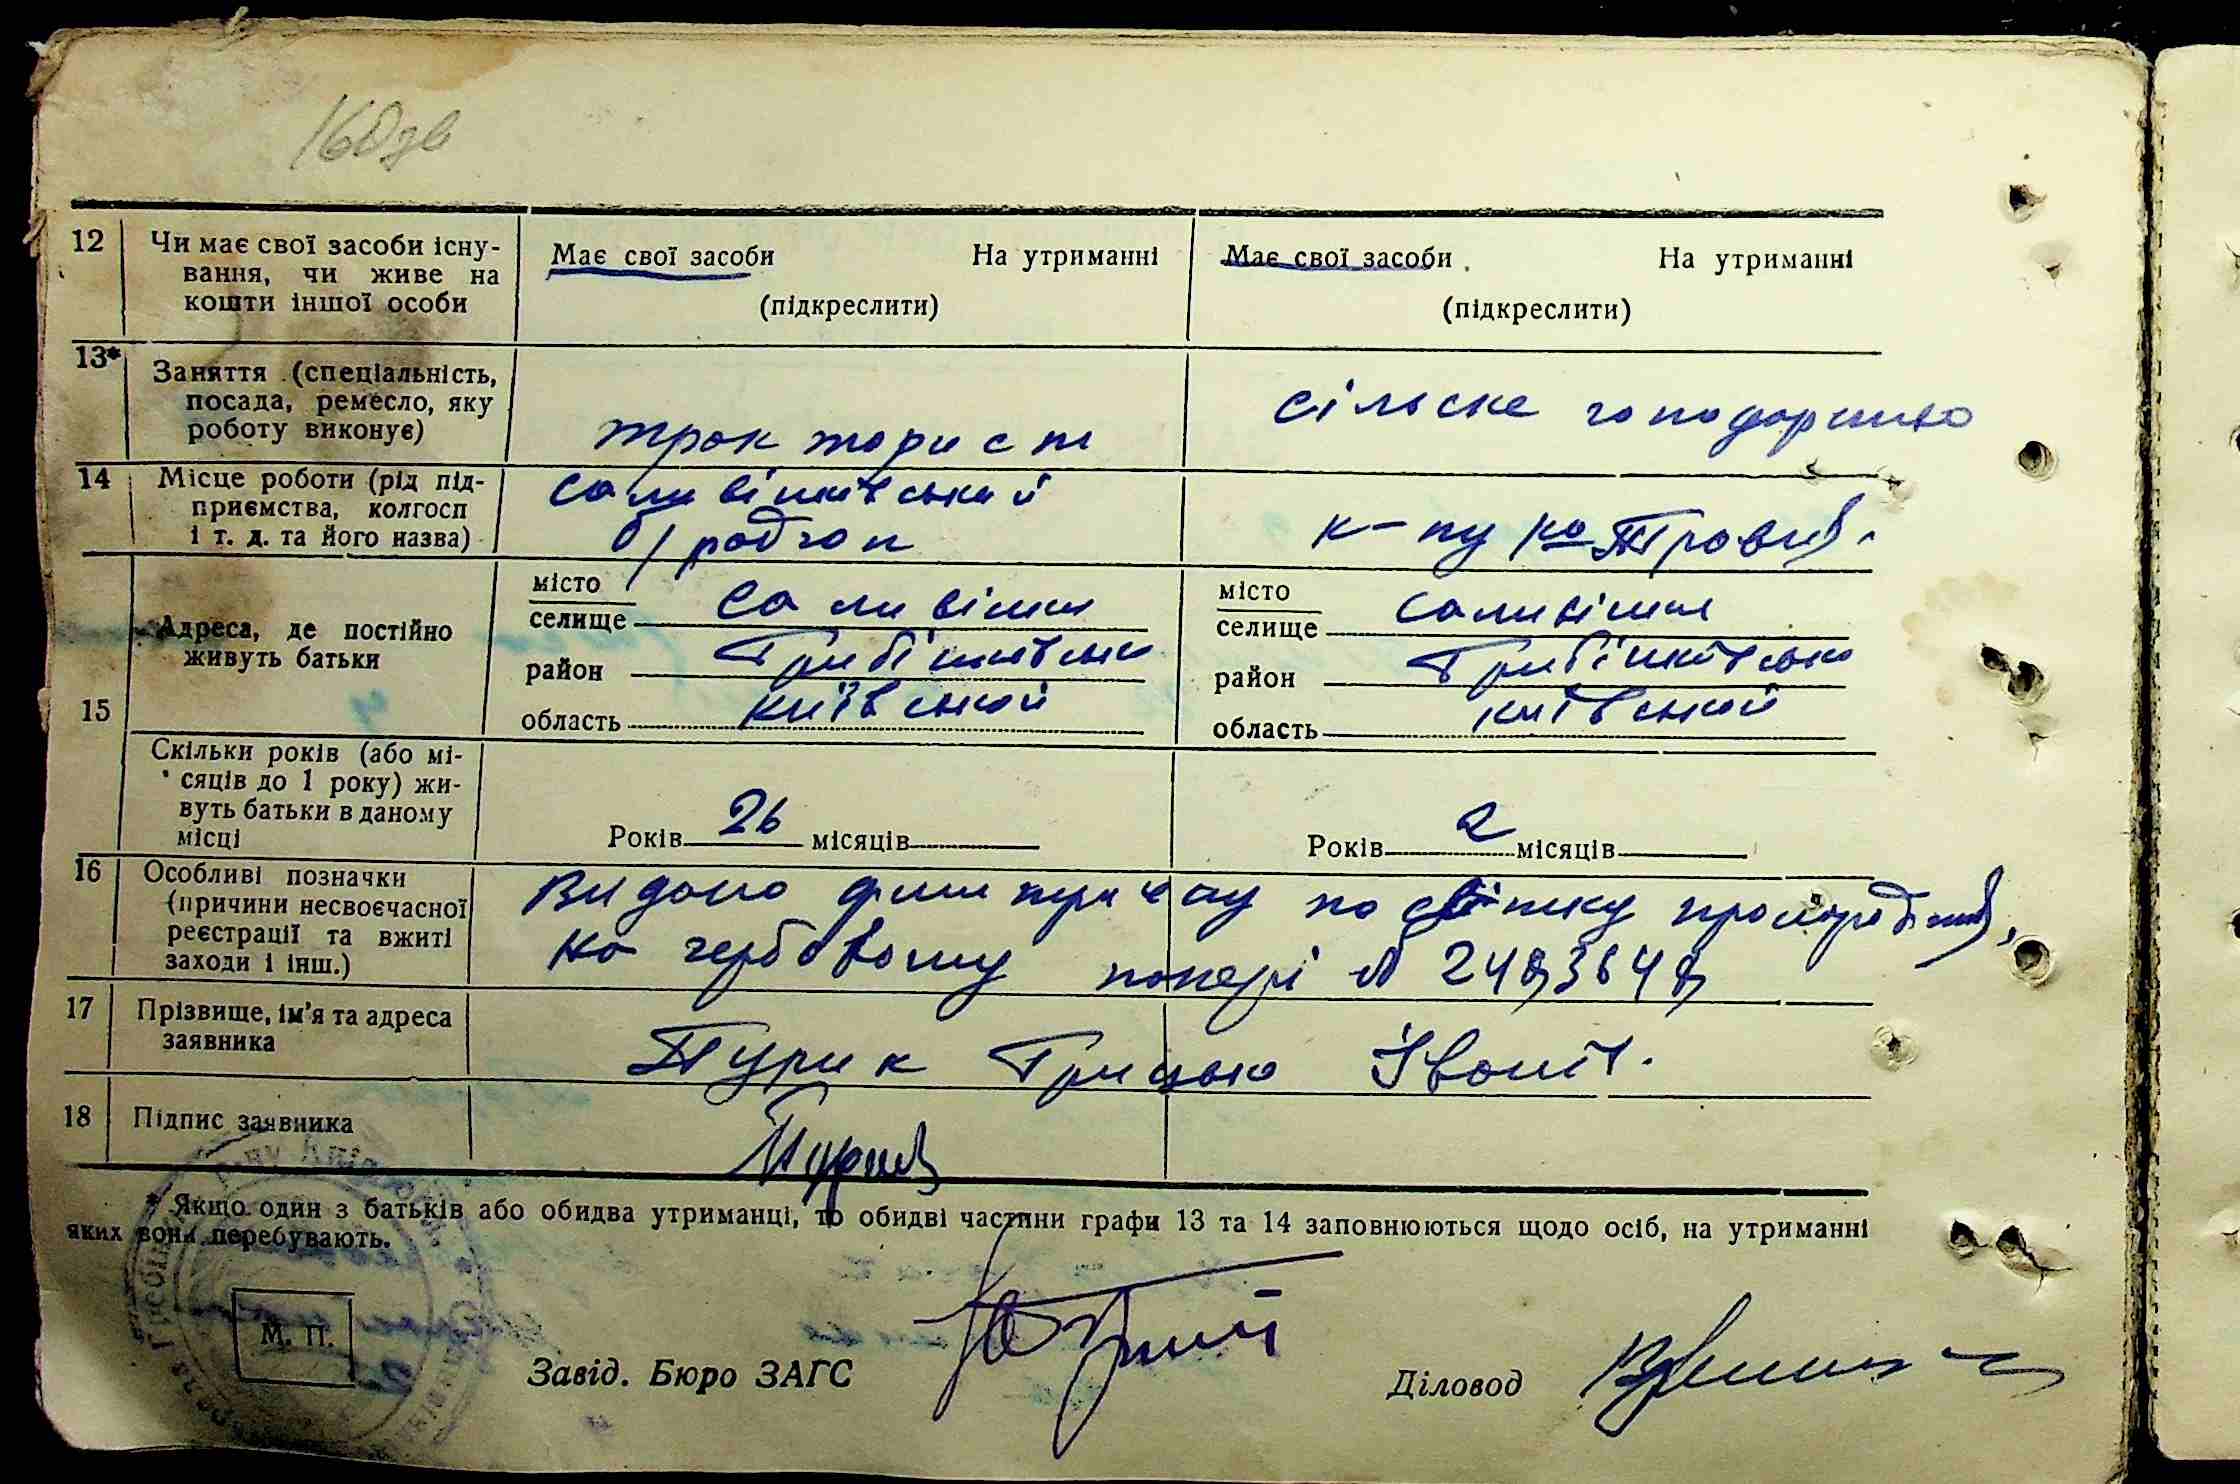 160зв
12 Чи має свої засоби існу-
вання, чи живе на
кошти іншої особи
Має свої засоби На утриманні
(підкреслити)
Має свої засоби На утриманні
(підкреслити)
13* Заняття (спеціальність,
посада, ремесло, яку
роботу виконує)
тракторист
сільске господарство
14 Місце роботи (рід під-
приємства, колгосп
і т. д. та його назва)
саливінківський
б/радгосп
15 Адреса, де постійно
живуть батьки
місто
селище Саливінки
район Гребінківськ
область київської
місто
селище саливінки
район Гребінківськ
область київської
Скільки років (або мі-
сяців до 1 року) жи-
вуть батьки в даному
місці
Років 26 місяців
Років 2 місяців
16 Особливі позначки
(причини несвоєчасної
реєстрації та вжиті
заходи і інш.)
Видано
на гербовому папері №
17 Прізвище, ім'я та адреса
заявника
Пурик Грицько Іванів.
18 Підпис заявника
* Якщо один з батьків або обидва утриманці, то обидві частини графи 13 та 14 заповнюються щодо осіб, на утриманні
яких вони перебувають.
М. П.
Завід. Бюро ЗАГС
Діловод